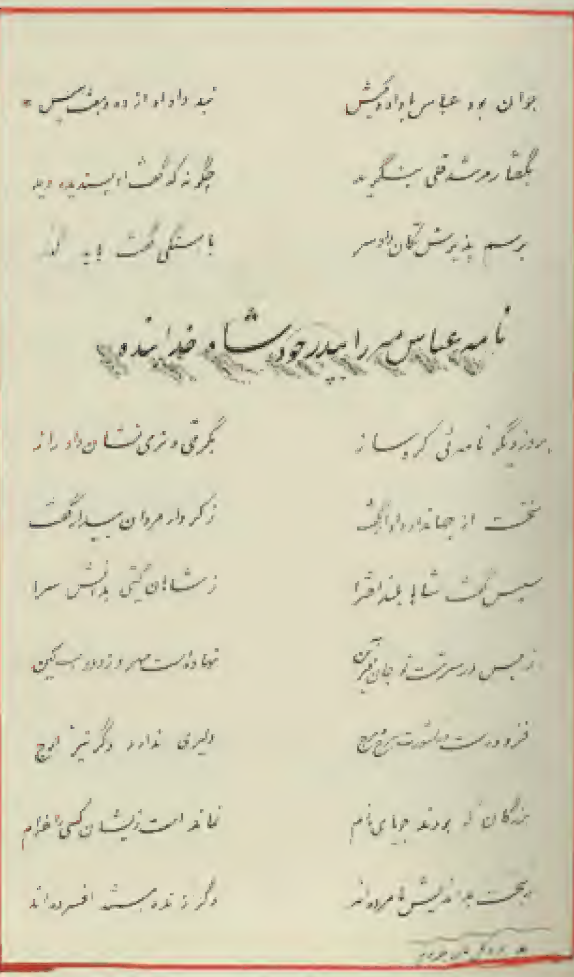 جوان بود عباس با داد و کیش نبد داد او از ده و بیش
بگفتار مرشد قلی بنگرید چگونه که گفت او پسندیده دید
برسم پذیرش تکان داد سر گفت باید
نامه عباس میرزا بپدر خود شاه خدابنده
بروز دگر نامه‌ئی کرد ساز بگرمی و نرمی نشان داد راز
نخست از جهاندار دادار گفت ز کردار مردان بیدار گفت
سپس گفت شاها بلند اخترا ز شاهان گیتی بدانش سرا
ز بس در سرشت تو جان‌آفرین نهاده‌ست مهر و زدوده‌ست کین
فزوده‌ست در کشورت هرج و مرج دلیری ندارد دگر نیز ارج
بزرگان که بودند جویای نام نماند است زیشان کسی را خرام
بداندیش نامرده‌اند وگر زنده هستند افسرده‌اند